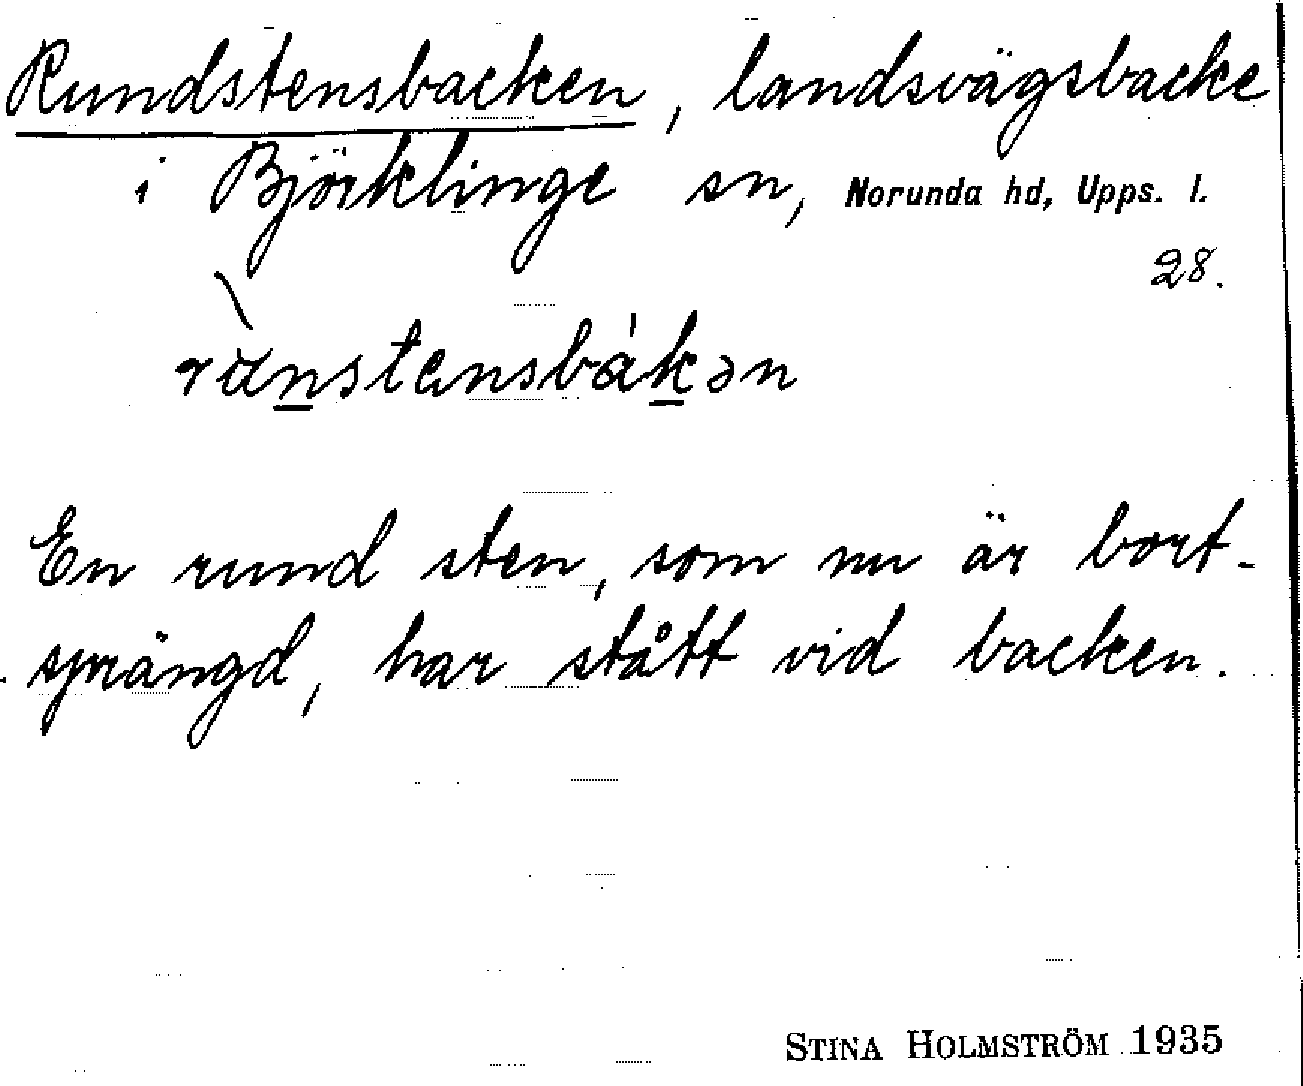 Rundstensbacken, landsvägsbacke
i Björklinge sn, Norunda hd, Upps. l.
28.
rùnstensbákən
En rund sten, som nu är bort-
sprängd, har stått vid backen.
STINA HOLMSTRÖM 1935